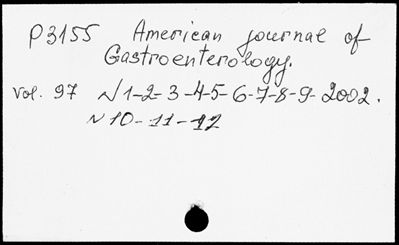 P3155 American journal of
Gastroenterology.
Vol. 97 N1-2-3-4-5-6-7-8-9- 2002.
N10-11-12